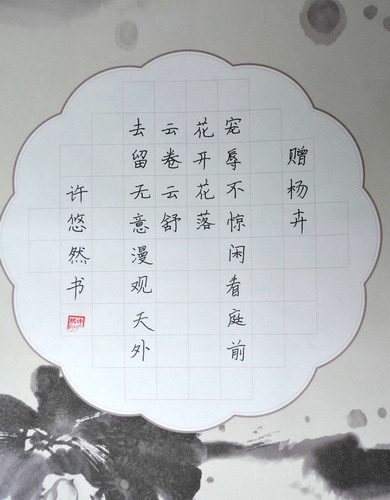 赠杨卉
宠辱不惊闲看庭前
花开花落
去留无意漫观天外
云卷云舒
许悠然书